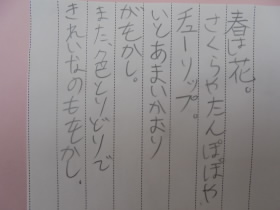 春は花。
さくらやたんぽぽや
チューリップ。
いとあまいかおり
がをかし。
また、色とりどりで
きれいなのもをかし。